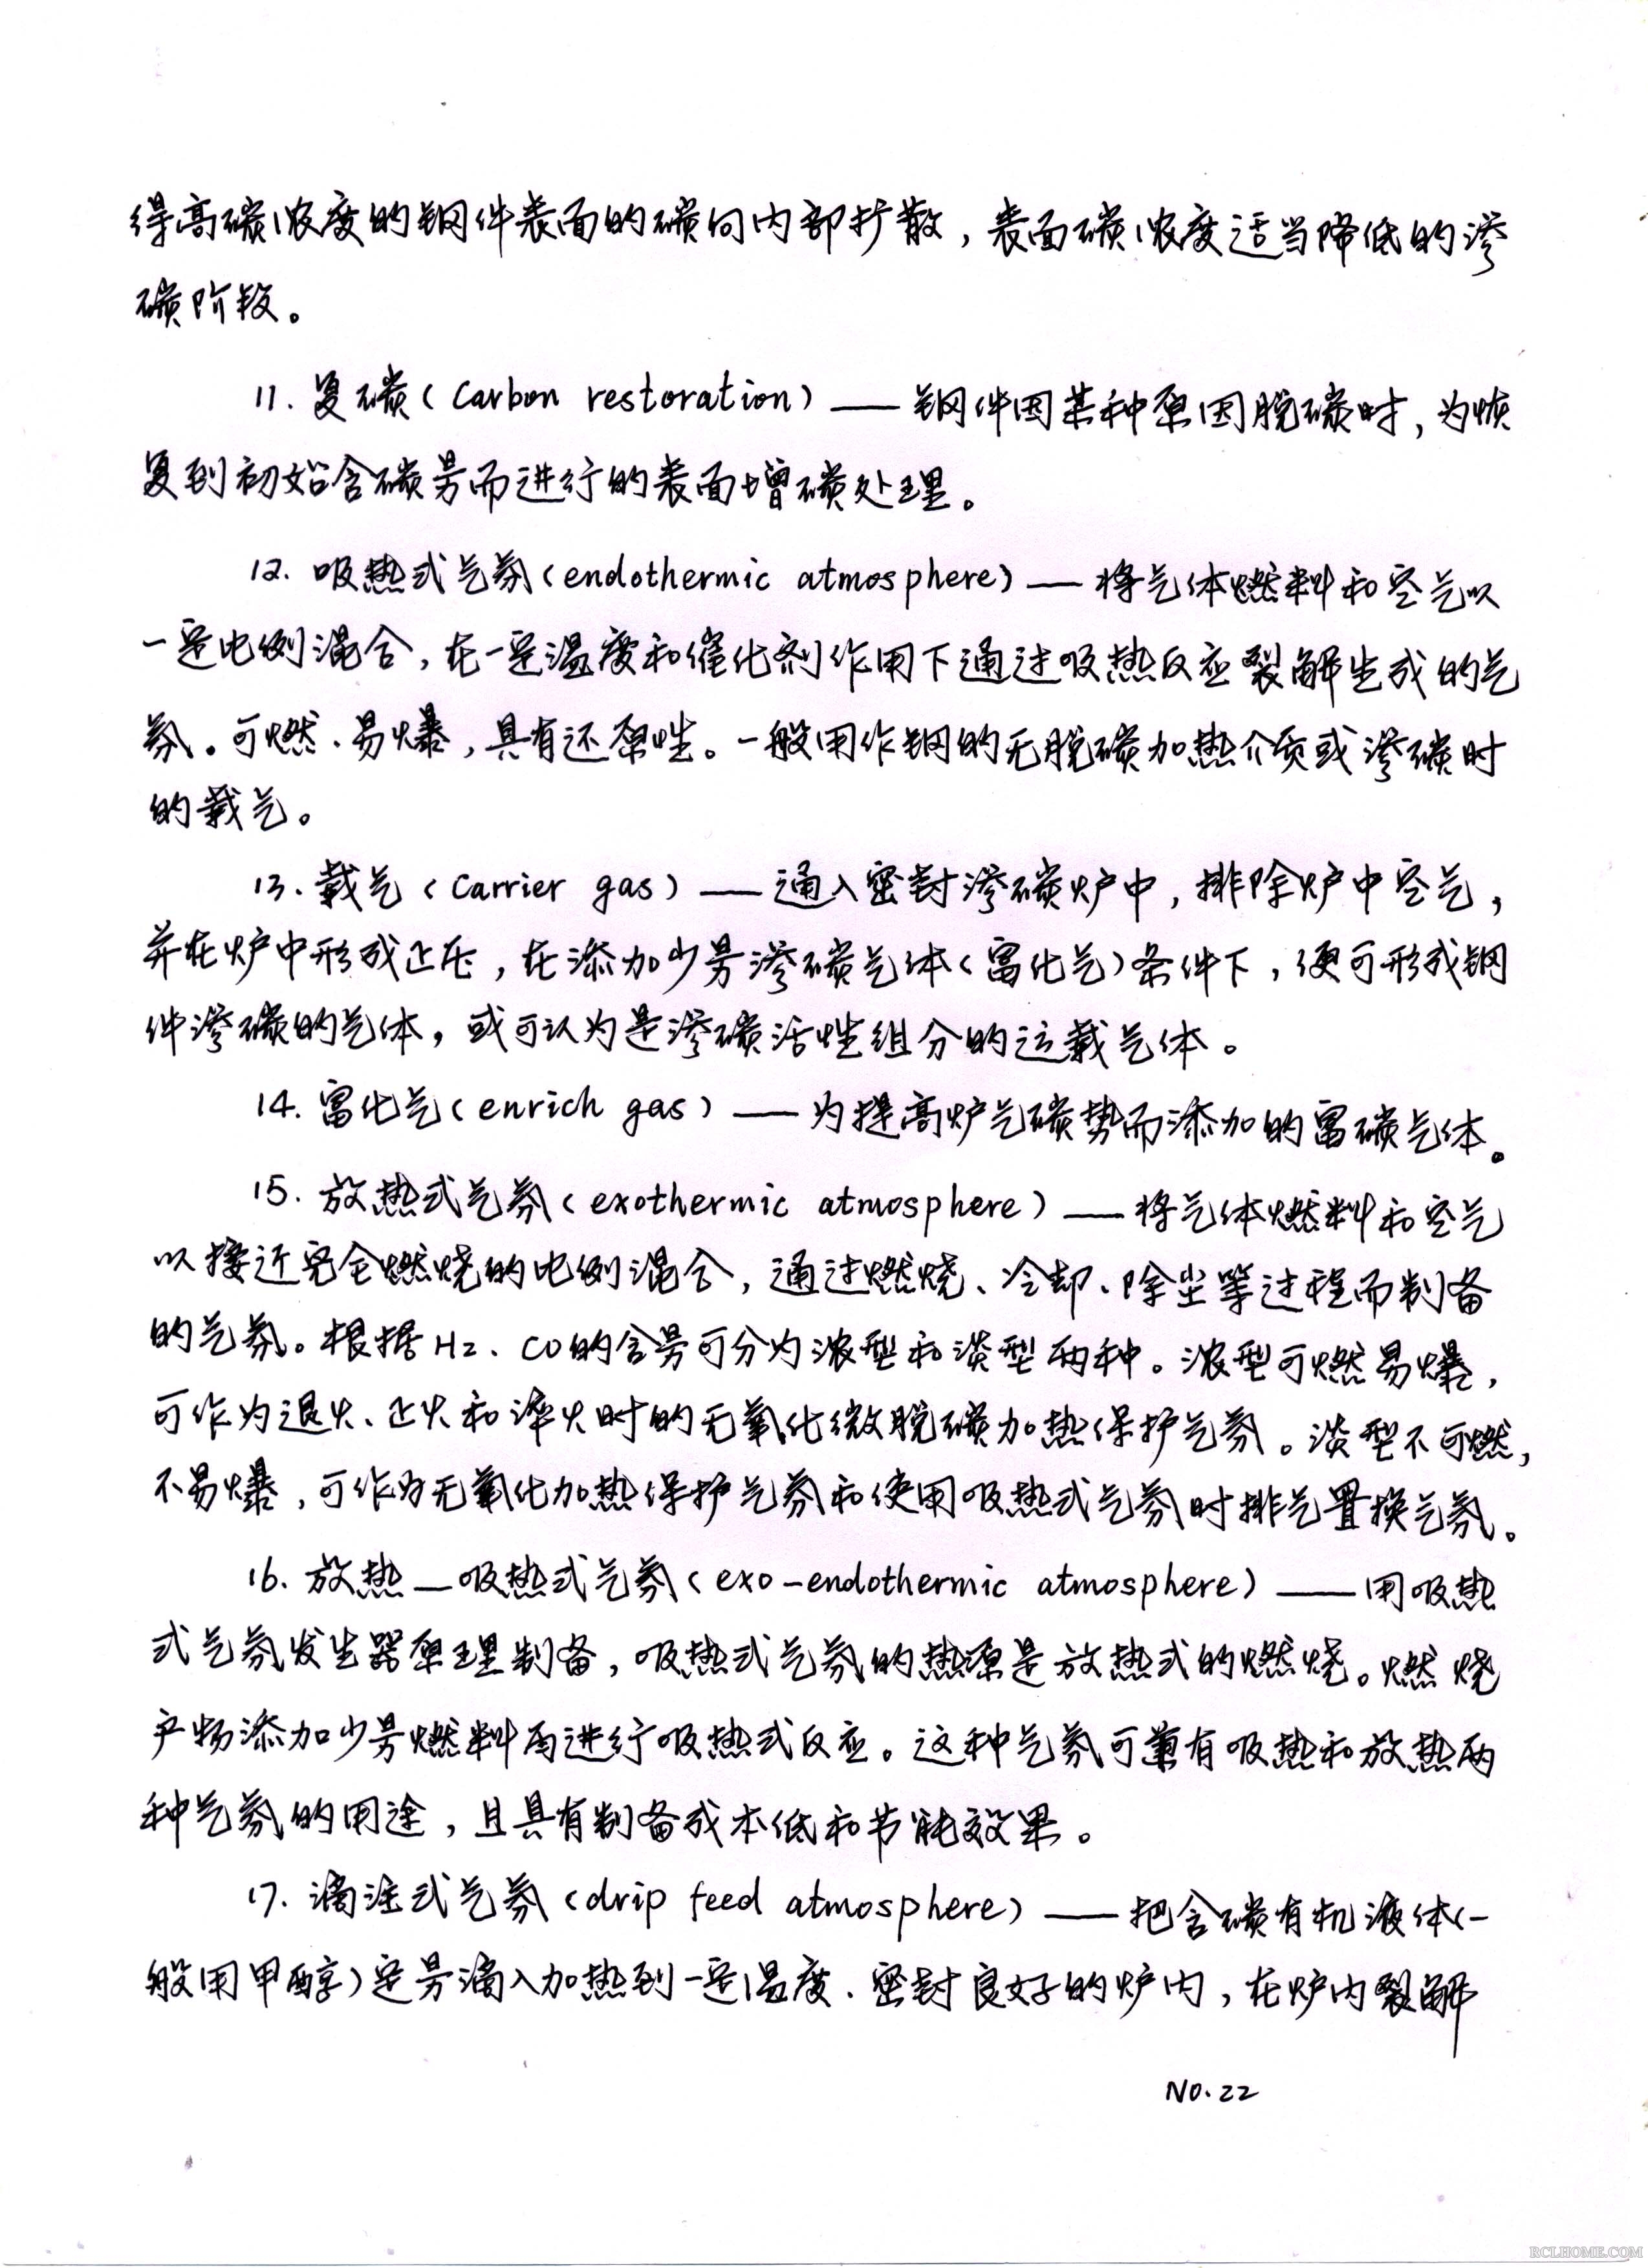 得高碳浓度的钢件表面的碳向内部扩散，表面碳浓度适当降低的渗
碳阶段。
11. 复碳（Carbon restoration）——钢件因某种原因脱碳时，为恢
复到初始含碳量而进行的表面增碳处理。
12. 吸热式气氛（endothermic atmosphere）——将气体燃料和空气以
一定比例混合，在一定温度和催化剂作用下通过吸热反应裂解生成的气
氛。可燃、易爆，具有还原性。一般用作钢的无脱碳加热介质或渗碳时
的载气。
13. 载气（Carrier gas）——通入密封渗碳炉中，排除炉中空气，
并在炉中形成正压，在添加少量渗碳气体（富化气）条件下，便可形成钢
件渗碳的气体，或可认为是渗碳活性组分的运载气体。
14. 富化气（enrich gas）——为提高炉气碳势而添加的富碳气体。
15. 放热式气氛（exothermic atmosphere）——将气体燃料和空气
以接近完全燃烧的比例混合，通过燃烧、冷却、除尘等过程而制备
的气氛。根据H2、CO的含量可分为浓型和淡型两种。浓型可燃易爆，
可作为退火、正火和淬火时的无氧化微脱碳加热保护气氛。淡型不可燃，
不易爆，可作为无氧化加热保护气氛和使用吸热式气氛时排气置换气氛。
16. 放热—吸热式气氛（exo-endothermic atmosphere）——用吸热
式气氛发生器原理制备，吸热式气氛的热源是放热式的燃烧。燃烧
产物添加少量燃料再进行吸热式反应。这种气氛可兼有吸热和放热两
种气氛的用途，且具有制备成本低和节能效果。
17. 滴注式气氛（drip feed atmosphere）——把含碳有机液体（一
般用甲醇）定量滴入加热到一定温度、密封良好的炉内，在炉内裂解
NO.22
RCLHOME.COM